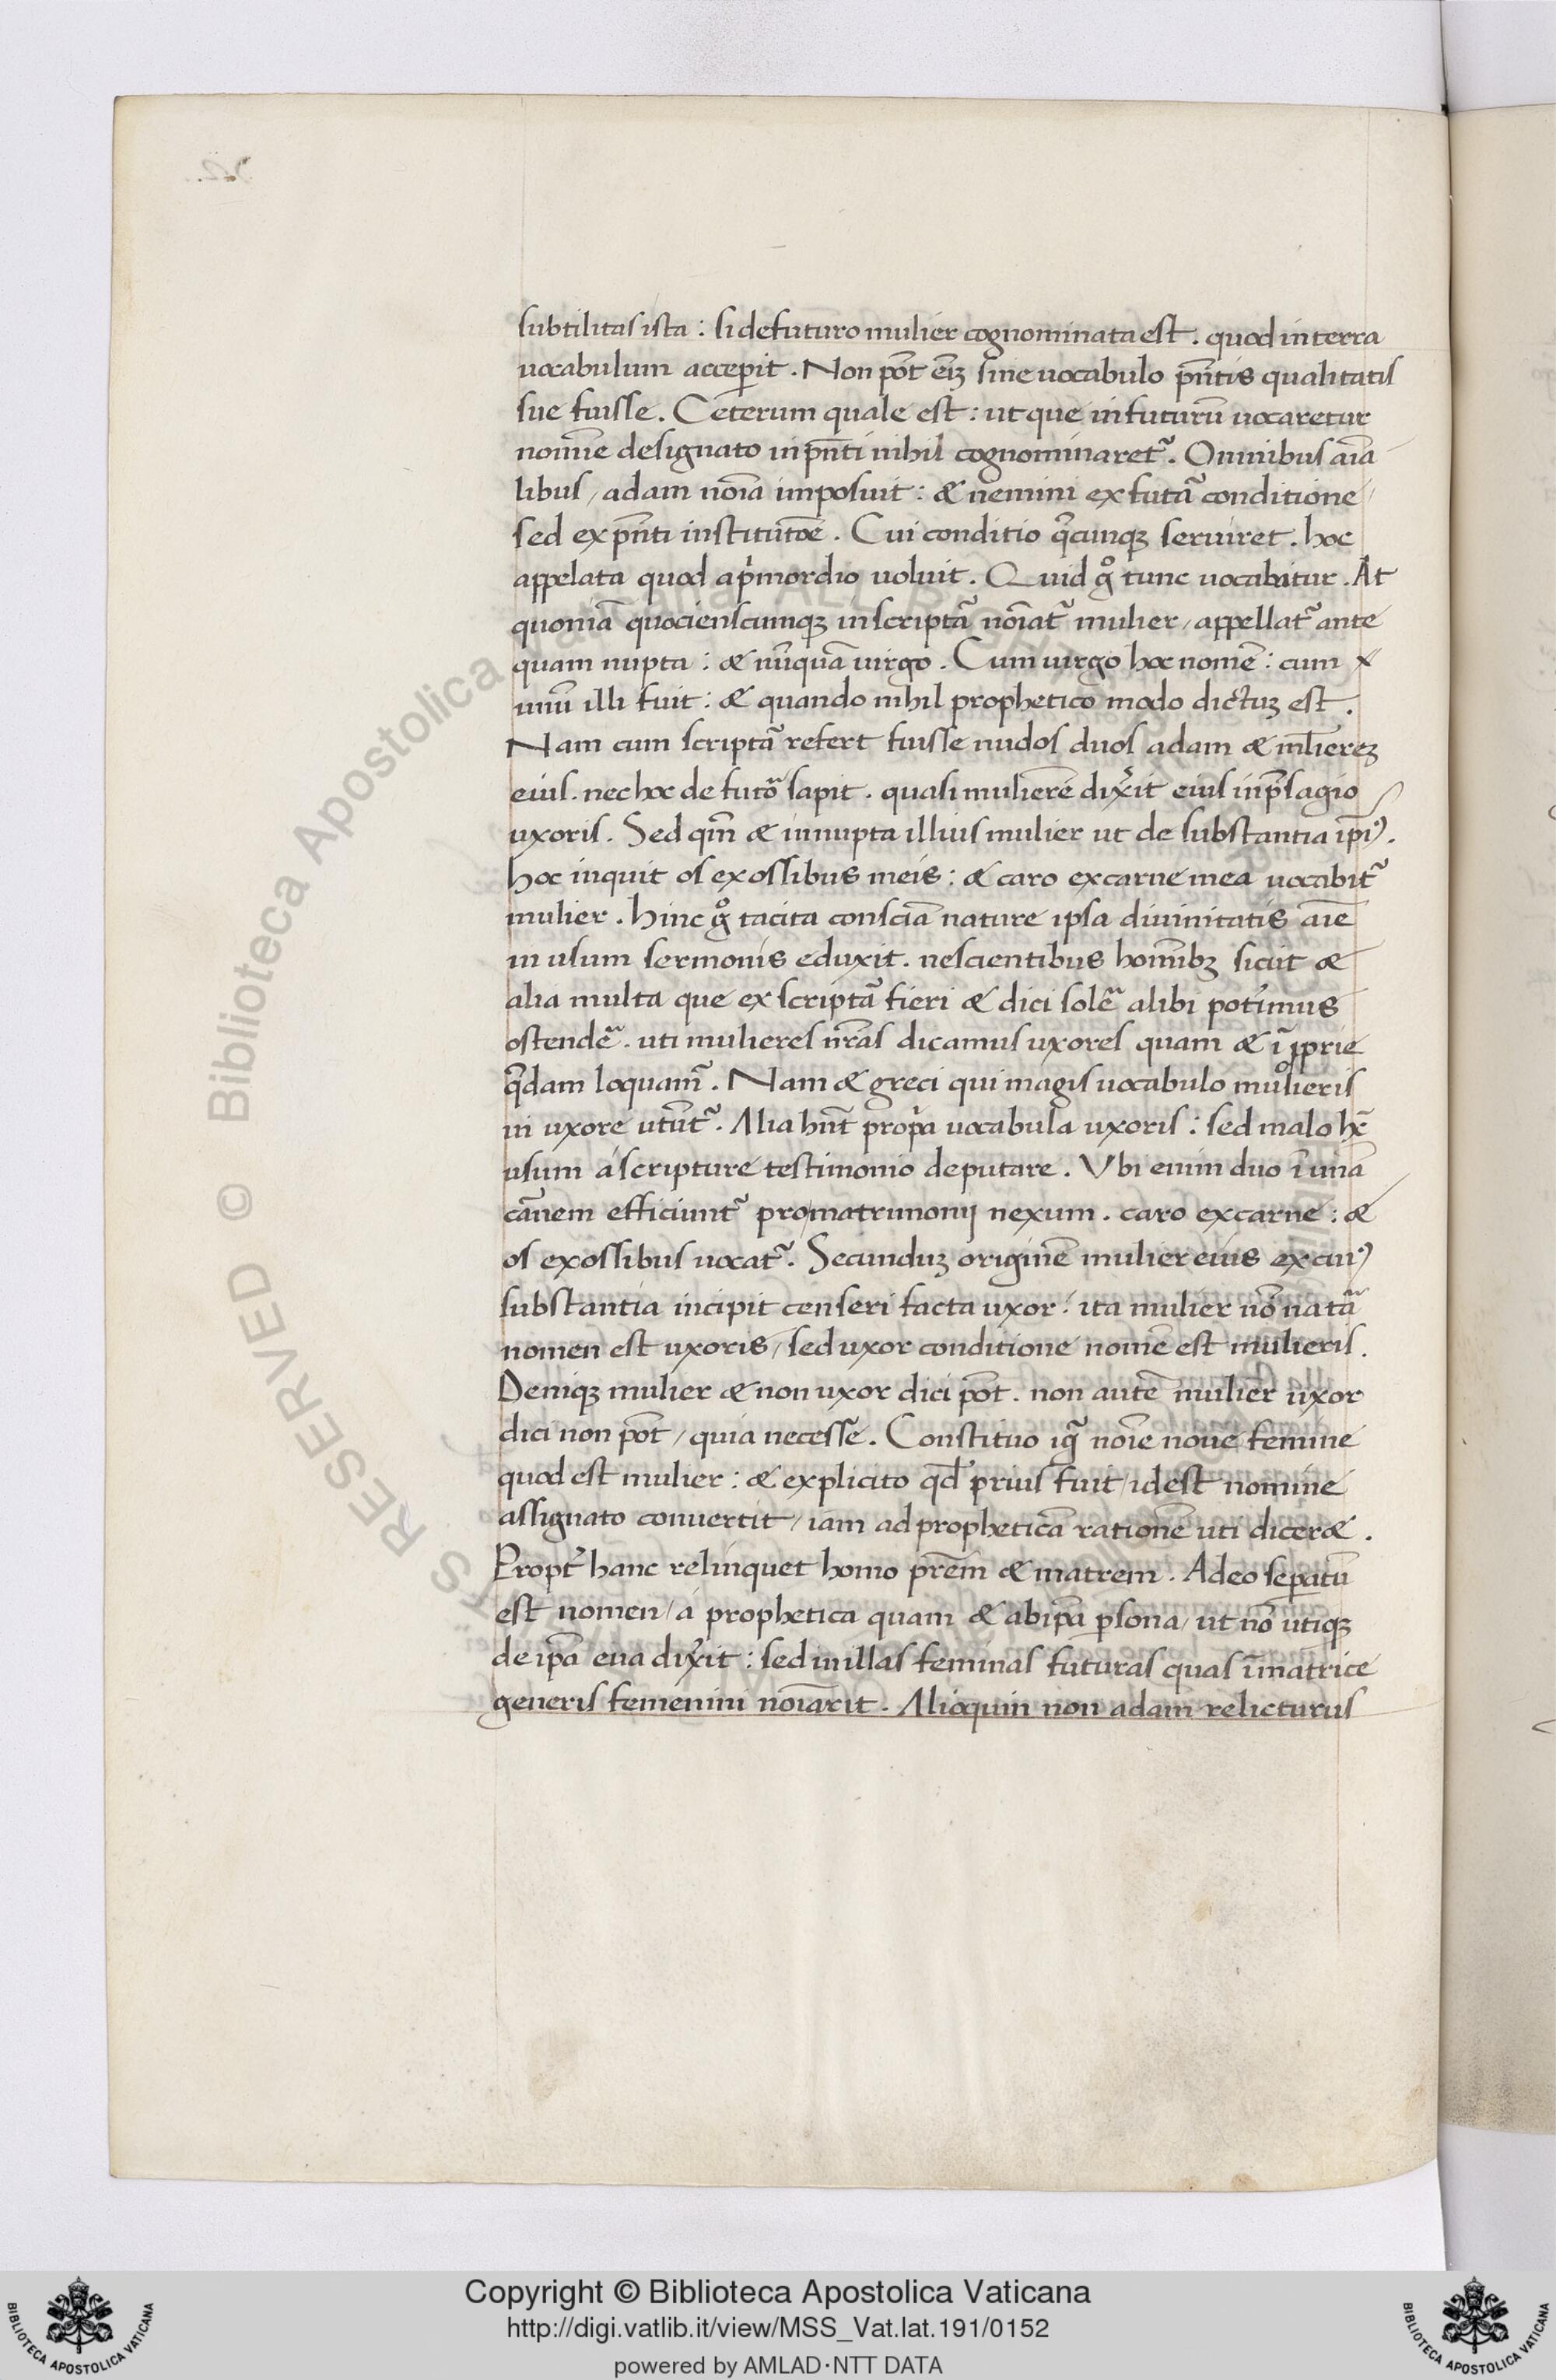 subtilitas ista : si de futuro mulier cognominata est . quod interra
uocabulum acceperit . Non pōt eīȝ sine uocabulo p̄ntis qualitatis
sue fuisse . Ceterum quale est : ut que in futurū uocaretur
nomīe designato in p̄nti nihil cognominaretᷣ . Omnibus aīa
libus / adam noīa imposuit : & nemini ex futā conditione /
sed ex p̄nti institutōe . Cui conditio q̄cunqȝ seruiret . hoc
appelata quod apͥmordio uoluit . Quid gͦ tunc uocabatur . At
quoniā quocienscumqȝ in scriptā noīatᷣ mulier / appellatᷣ ante
quam nupta : & nūquā uirgo . Cum uirgo hoc nomē : cum
unū illi fuit : & quando nihil prophetico modo dictuȝ est .
Nam cum scriptā refert fuisse nudos duos adam & ml̄iereȝ
eius . nec hoc de futō sapit . quasi mulierē dix̓it eius in p̄sagio
uxoris . Sed qm̄ & innupta illius mulier ut de substantia ip̄iꝰ .
hoc inquit os ex ossibus meis : & caro ex carne mea uocabitᷣ
mulier . hinc gͦ tacita consciā nature ipsa diuinitatis aīe
in usum sermonis eduxit . nescientibus homībȝ sicut &
alia multa que ex scriptā fieri & dici solē alibi potimus
ostendē . uti mulieres nr̄as dicamus uxores quam & ī ꝓprie
q̄dam loquamᷣ . Nam & greci qui magis uocabulo mulieris
in uxore utūtᷣ . Alia hn̄t propͥa uocabula uxoris : sed malo hē
usum a scripture testimonio deputare . Vbi enim duo ī unā
cānem efficiuntᷣ pro matrimonij nexum . caro ex carne : &
os ex ossibus uocatᷣ . Secunduȝ originē mulier eius ex cuiꝰ
substantia incipit censeri facta uxor : ita mulier nō natā
nomen est uxoris / sed uxor conditione nomē est mulieris .
Deniqȝ mulier & non uxor dici pōt . non autē mulier uxor
dici non pōt / quia necesse . Constituo igͣ noīe noue femine
quod est mulier : & explicito qđ prius fuit / id est nomine
assignato conuertit / iam ad propheticā rationē uti dicer& .
Propt̓ hanc relinquet homo prēm & matrem . Adeo sepatū
est nomen / a prophetica quam & ab ip̄a ꝑsona / ut nō utiqȝ
de ip̄a eua dix̓it : sed in illas feminas futuras quas ī matrice
generis femenini noīarit . Alioquin non adam relicturus
Copyright © Biblioteca Apostolica Vaticana
http://digi.vatlib.it/view/MSS_Vat.lat.191/0152
powered by AMLAD·NTT DATA
BIBLIOTECA APOSTOLICA VATICANA
BIBLIOTECA APOSTOLICA VATICANA